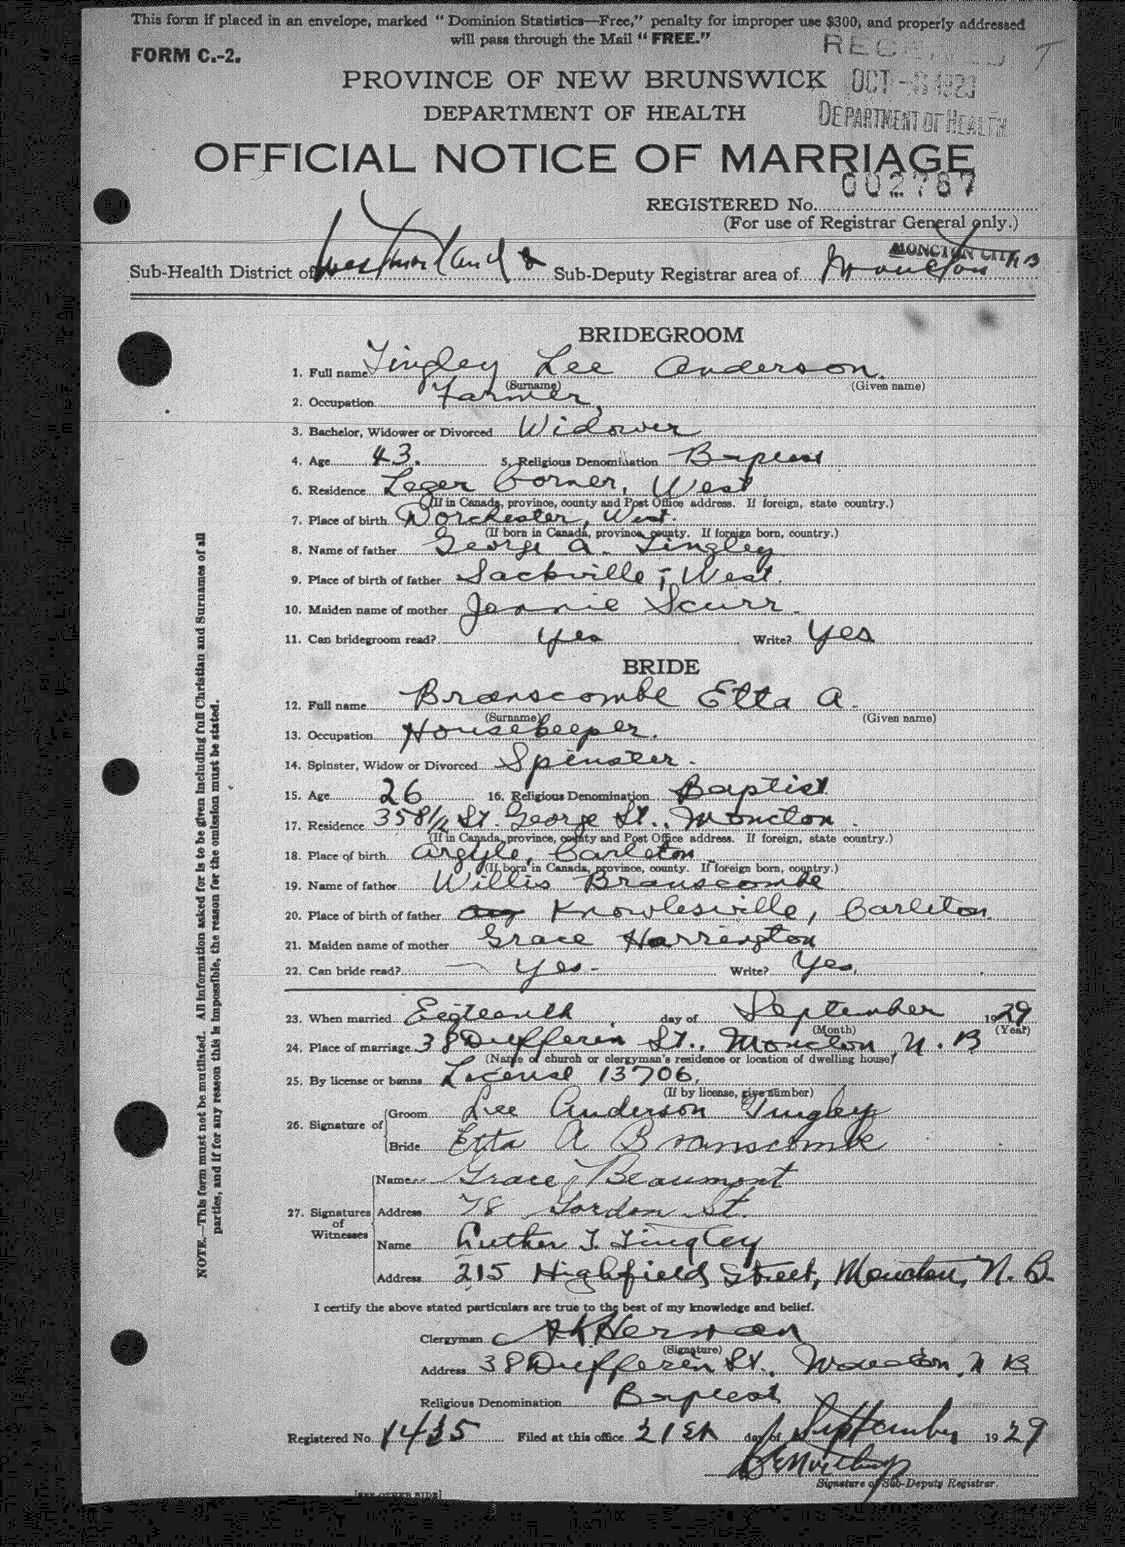 This form if placed in an envelope, marked "Dominion Statistics—Free," penalty for improper use $300, and properly addressed
will pass through the Mail "FREE."
FORM C.-2.
RECEIVED
OCT 1929
DEPARTMENT OF HEALTH
PROVINCE OF NEW BRUNSWICK
DEPARTMENT OF HEALTH
OFFICIAL NOTICE OF MARRIAGE
REGISTERED No. 002787
(For use of Registrar General only.)
MONCTON CITY N B
Sub-Health District of Westmorland & Sub-Deputy Registrar area of Moncton
BRIDEGROOM
1. Full name Tingley Lee Anderson.
(Surname) (Given name)
2. Occupation Farmer,
3. Bachelor, Widower or Divorced Widower
4. Age 43. 5. Religious Denomination Baptist
6. Residence Leger Corner, West
(If in Canada, province, county and Post Office address. If foreign, state country.)
7. Place of birth Dorchester, West.
(If born in Canada, province, county. If foreign born, country.)
8. Name of father George A. Tingley
9. Place of birth of father Sackville, West.
10. Maiden name of mother Jennie Scurr.
11. Can bridegroom read? yes Write? yes
BRIDE
12. Full name Branscombe Etta A.
(Surname) (Given name)
13. Occupation Housekeeper.
14. Spinster, Widow or Divorced Spinster.
15. Age 26 16. Religious Denomination Baptist
17. Residence 358 1/2 St. George St., Moncton.
(If in Canada, province, county and Post Office address. If foreign, state country.)
18. Place of birth Argyle, Carleton
(If born in Canada, province, county. If foreign born, country.)
19. Name of father Willis Branscombe
20. Place of birth of father Knowlesville, Carleton
21. Maiden name of mother Grace Harrington
22. Can bride read? yes- Write? Yes
23. When married Eigteenth day of September 1929
(Month) (Year)
24. Place of marriage 38 Dufferin St., Moncton N. B
(Name of church or clergyman's residence or location of dwelling house)
25. By license or banns License 13706,
(If by license, give number)
26. Signature of
Groom Lee Anderson Tingley
Bride Etta A Branscombe
27. Signatures of Witnesses
Name Grace Beaumont
Address 78 Gordon St.
Name Luther T. Tingley
Address 215 Highfield Street, Moncton, N. B.
I certify the above stated particulars are true to the best of my knowledge and belief.
Clergyman A K Herman
(Signature)
Address 38 Dufferin St., Moncton, N B
Religious Denomination Baptist
Registered No. 1435 Filed at this office 21st day of September 1929
Signature of Sub-Deputy Registrar.
[SEE OTHER SIDE]
NOTE.—This form must not be mutilated. All information asked for is to be given including full Christian and Surnames of all
parties, and if for any reason this is impossible, the reason for the omission must be stated.